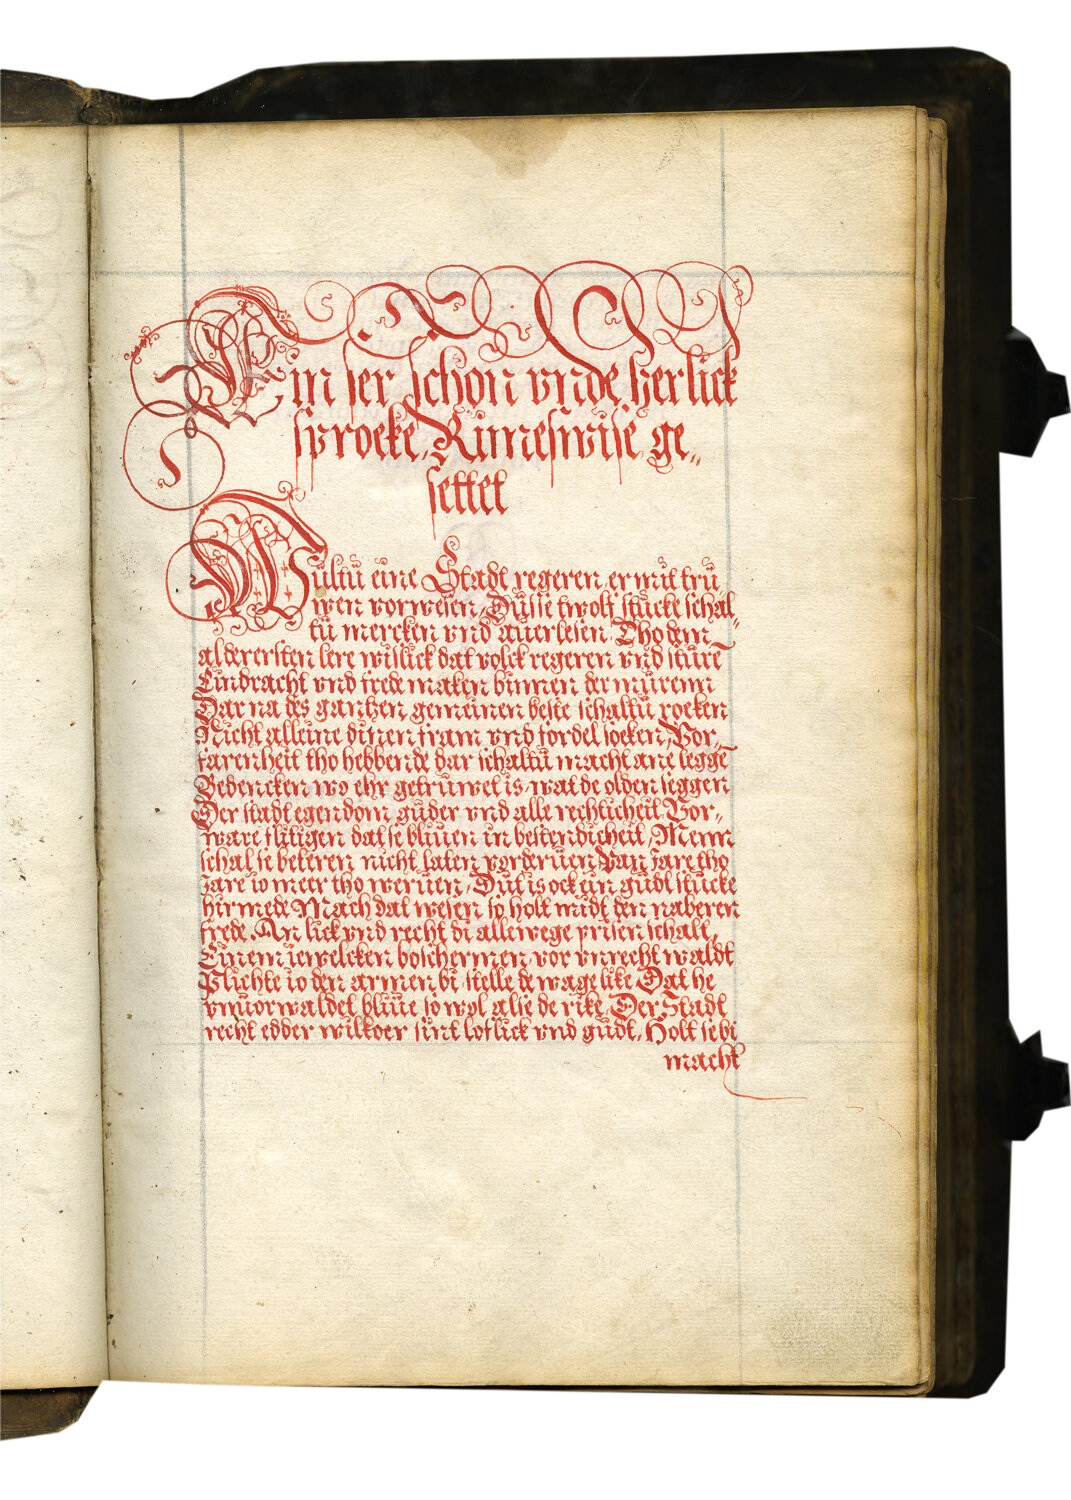 Ein ser schon vnde herlick
sproeke, Rimeswise, ge„
settet
Wultu eine Stadt regeren, er mit trü
wen vorwesen, Düsse twolf stücke schal„
tü mercken vnd auerlesen, Tho dem
aldererersten lere wislick dat volck regeren vnd stüre
Eindracht vnd frede maken binnen der mürenn
Dar na des gantzen gemeinen beste schaltu roeken
Nicht alleine dinen fram vnd fordel soeken, Vor„
farenheit tho hebbende dar schaltü macht ane legge
Bedencken wo ehr getruwet is, wat de olden seggen
Der stadt egendom güder vnd alle rechticheit, Vor„
ware flitigen dat se bliuen in bestendicheit, Menn
schal se beteren nicht laten vorderuen Van Jare tho
Jare io meer tho weruen, Düt is ock ein gudt stücke
hirmede Mach dat wesen so holt midt den naberen
frede, An lick vnd recht di allewege prisen schalt,
Einem iewelcken boschermen vor vnrecht waldt
Plichte io den armen bi stelle de wage like, Dat he
vnuorwaldet bliue so wol alse de rike, Der Stadt
recht edder wilkoer sint loflick vnd gudt, Holt se bi
macht